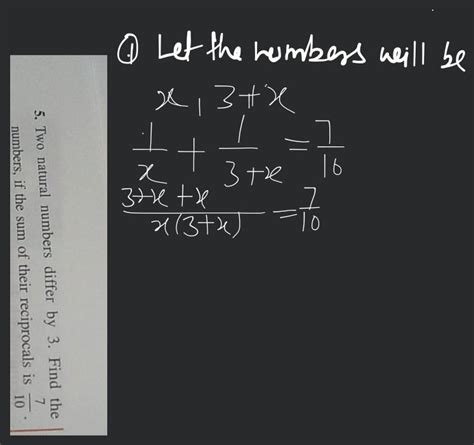 5. Two natural numbers differ by 3. Find the
numbers, if the sum of their reciprocals is 7/10.
① Let the numbers will be
x, 3+x
1/x + 1/3+x = 7/10
3+x+x/x(3+x) = 7/10